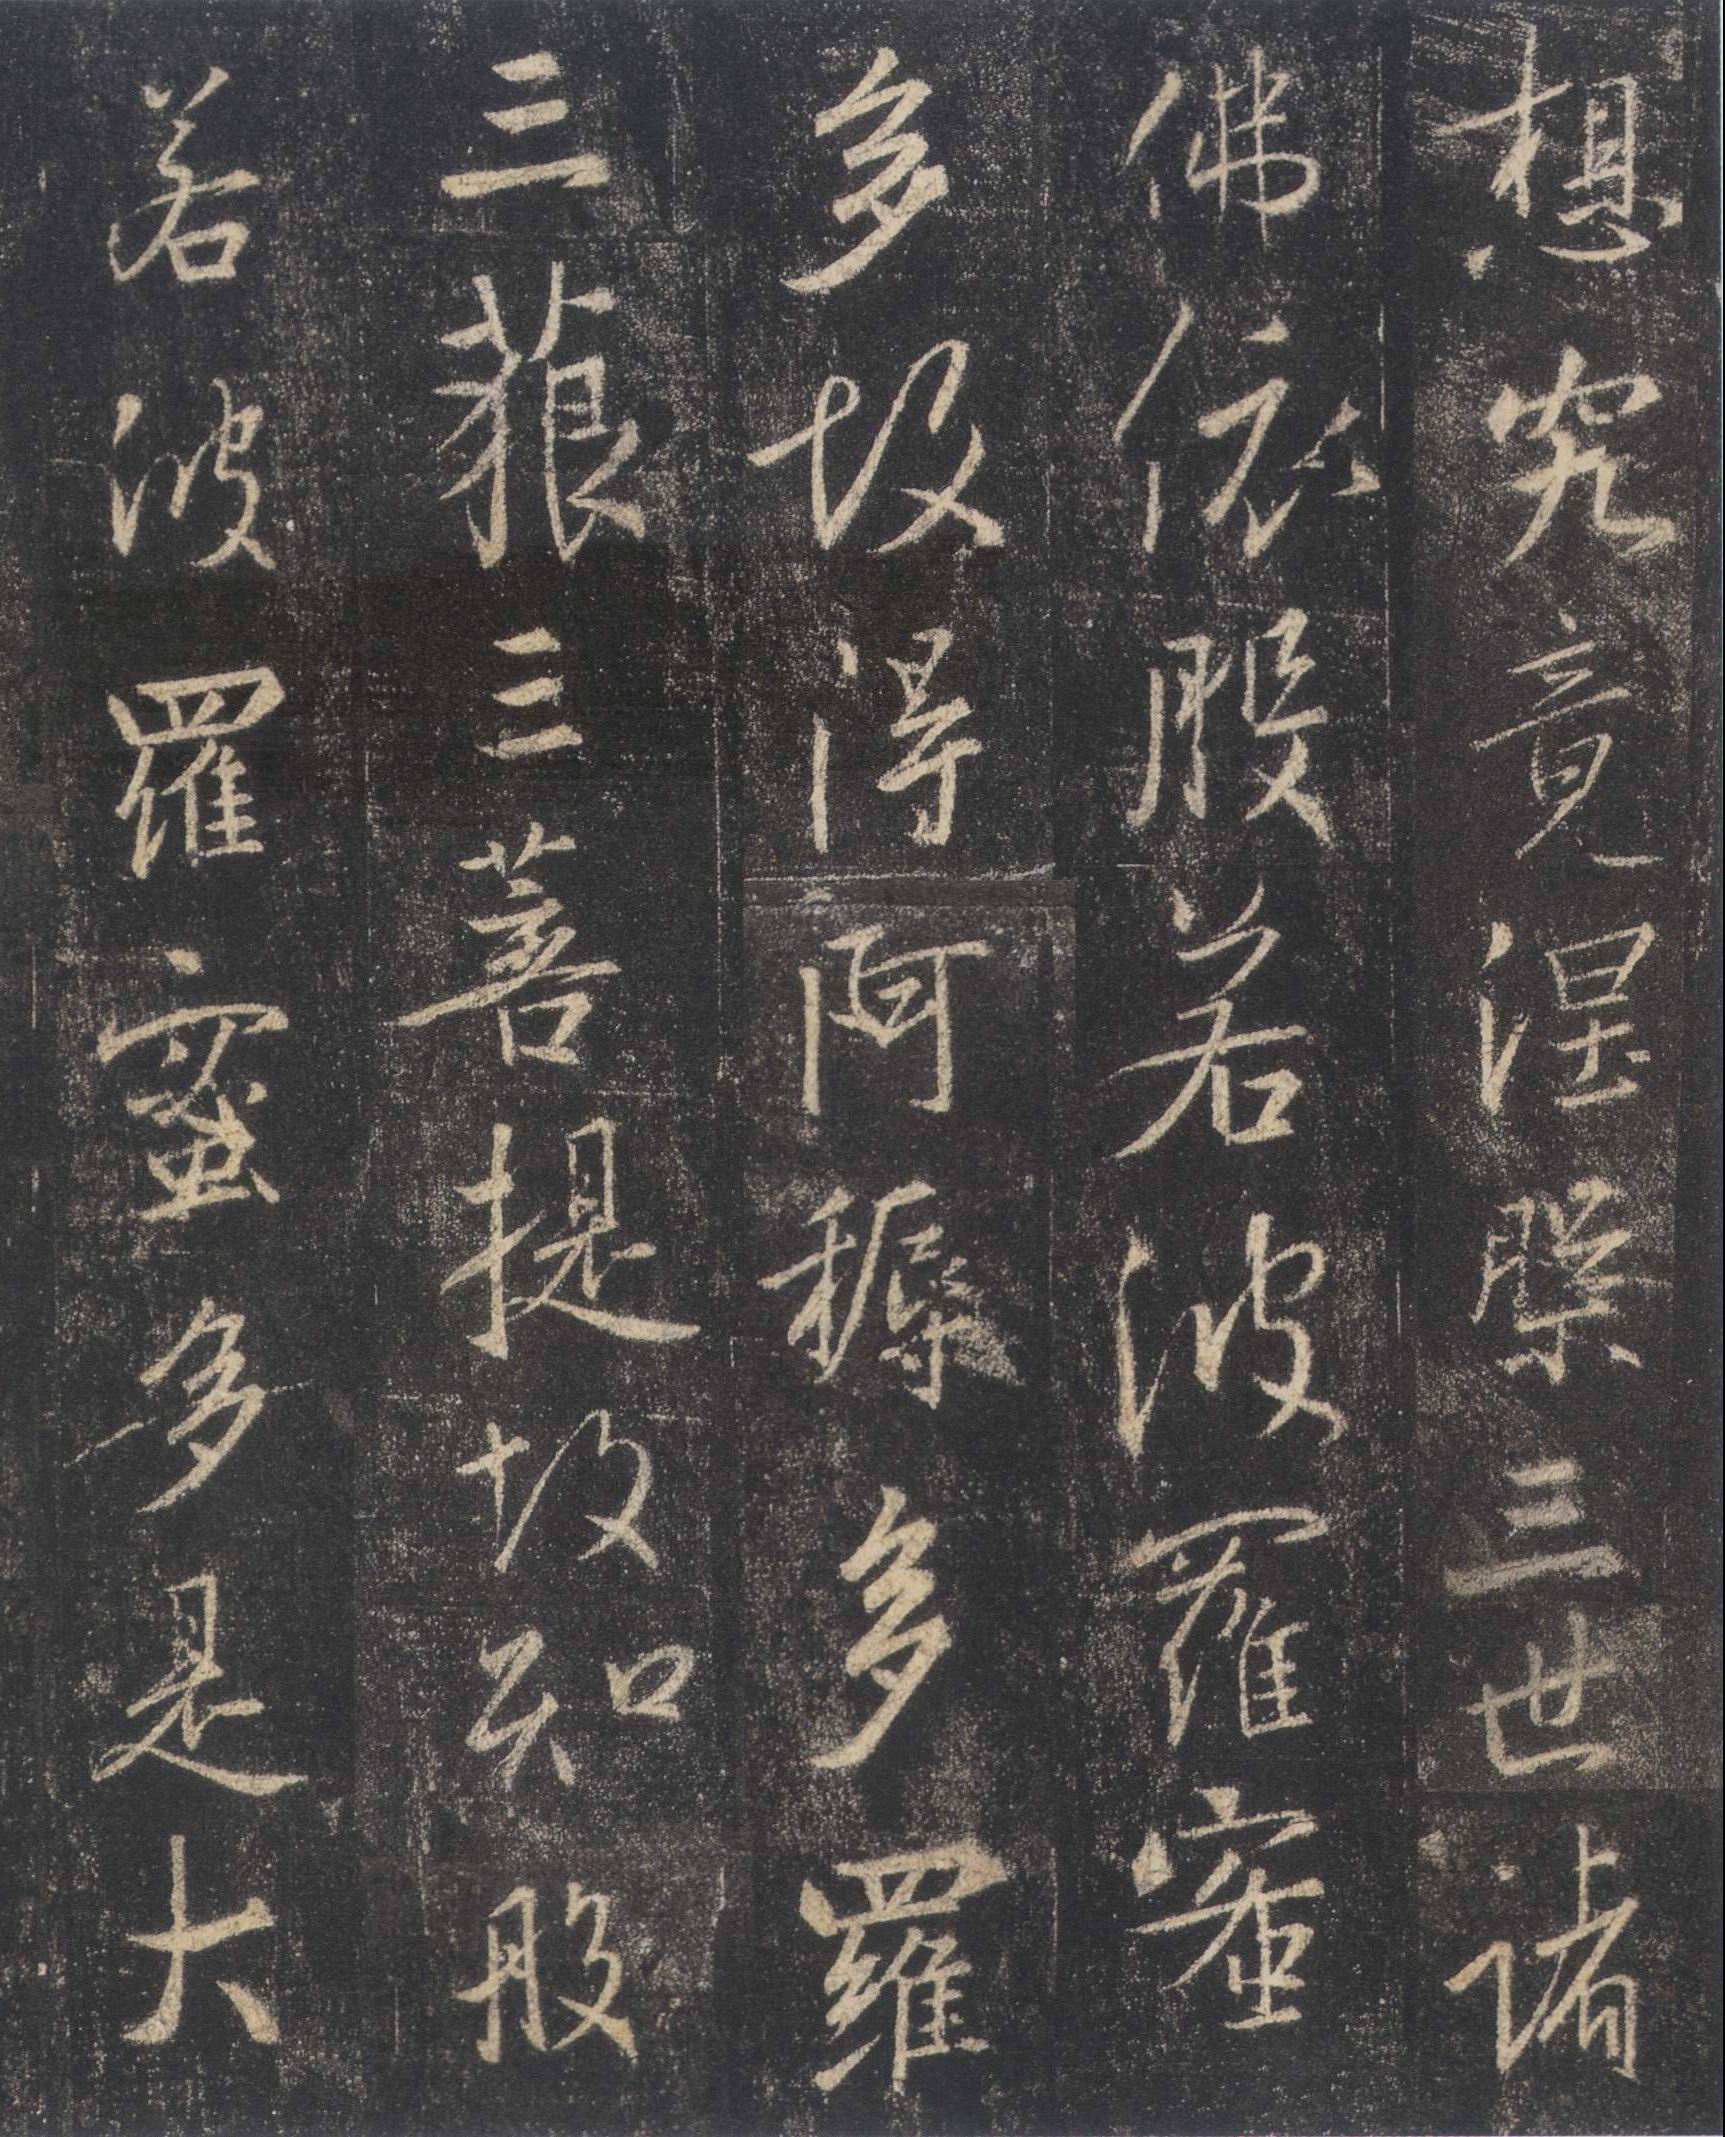 想究竟涅槃三世諸
佛依般若波羅蜜
多故得阿耨多羅
三藐三菩提故知般
若波羅蜜多是大